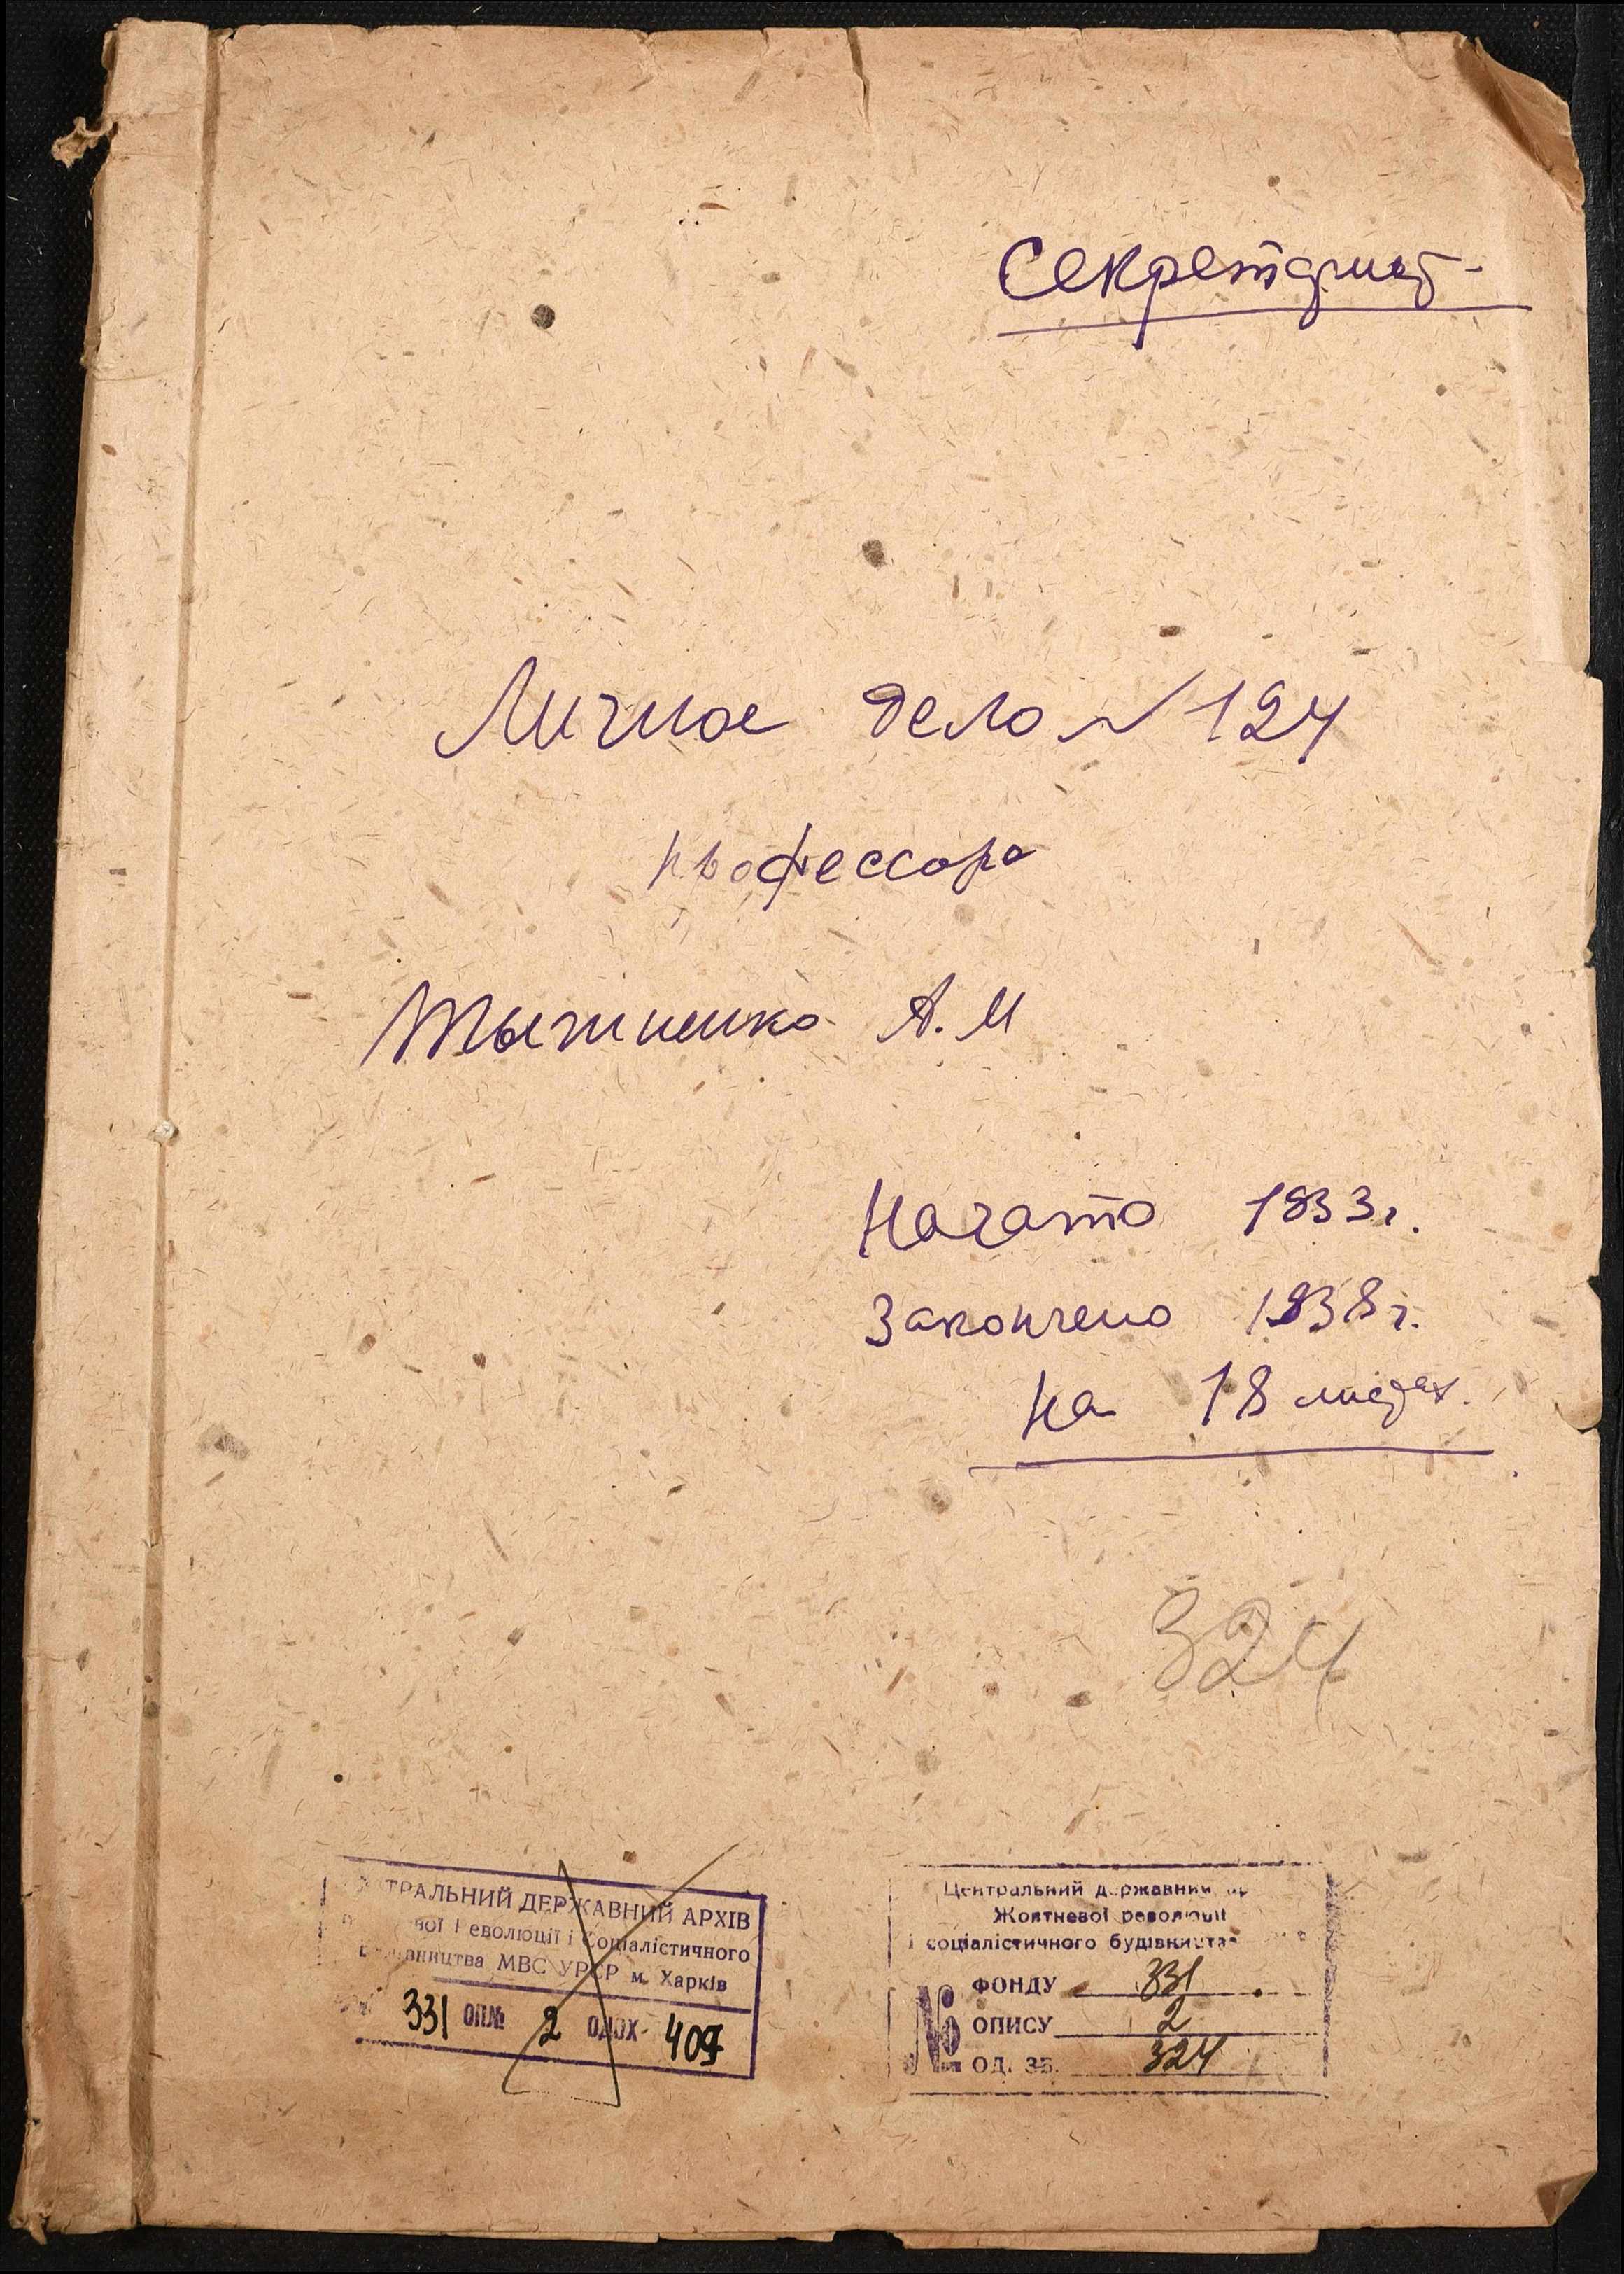 Секретариат
Личное дело № 124
профессора
Тыжненко А. М
Начато 1933г.
Закончено 1938г.
на 18 листах.
324
ТРАЛЬНИЙ ДЕРЖАВНИЙ АРХІВ
еволюції і Соціалістичного
МВС УРСР м. Харків
331 ОП№ 2 ОД.ЗХ 409
Центральний державний
Жовтневої революції
і соціалістичного будівництва
№
ФОНДУ 331
ОПИСУ 2
ОД. ЗБ. 324